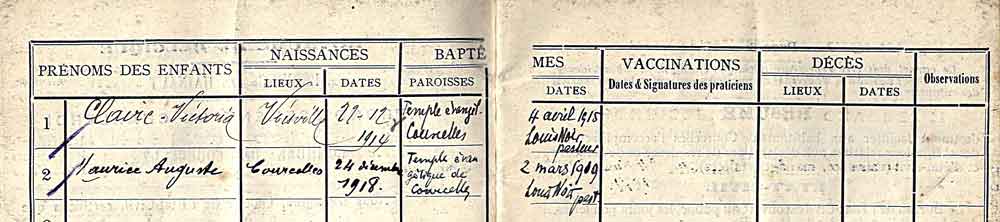 PRÉNOMS DES ENFANTS
NAISSANCES
LIEUX
DATES
BAPTÊMES
PAROISSES
DATES
VACCINATIONS
Dates & Signatures des praticiens
DÉCÈS
LIEUX
DATES
Observations
1
Claire-Victoria
Viesville
22-12
1914
Temple évangel.
Courcelles
4 avril 1915
Louis Noir
pasteur
2
Maurice Auguste
Courcelles
24 décembre
1918.
Temple évan
gélique de
Courcelles
2 mars 1919
Louis Noir
past.